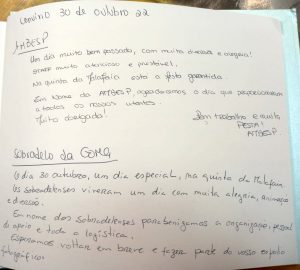 Convívio 30 de outubro 22
AMBESP
Um dia muito bem passado, com muita diversão e alegria!
STAFF muito atencioso e prestável.
Na quinta da Malafaia esta a festa garantida.
Em Nome da AMBESP, agradecemos o dia que proporcionaram
a todos os nossos utentes.
Muito obrigado!
Bom trabalho e muita
FESTA!
AMBESP.
Sobradelo da Goma
O dia 30 outubro, um dia especial, na quinta da Malafaia.
Os sobradelenses viveram um dia com muita alegria, animação
e diversão.
Em nome dos sobradelenses parabenizamos a organização, pessoal
de apoio e toda a logística.
Esperamos voltar em breve e fazer parte do vosso espólio
fotográfico